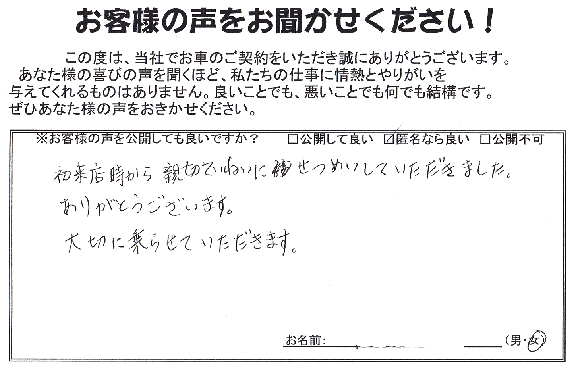 お客様の声をお聞かせください！
この度は、当社でお車のご契約をいただき誠にありがとうございます。
あなた様の喜びの声を聞くほど、私たちの仕事に情熱とやりがいを
与えてくれるものはありません。良いことでも、悪いことでも何でも結構です。
ぜひあなた様の声をおきかせください。
※お客様の声を公開しても良いですか？ □公開して良い ☑匿名なら良い □公開不可
初来店時から親切ていねいにせつめいしていただきました。
ありがとうございます。
大切に乗らせていただきます。
お名前: (男・女)